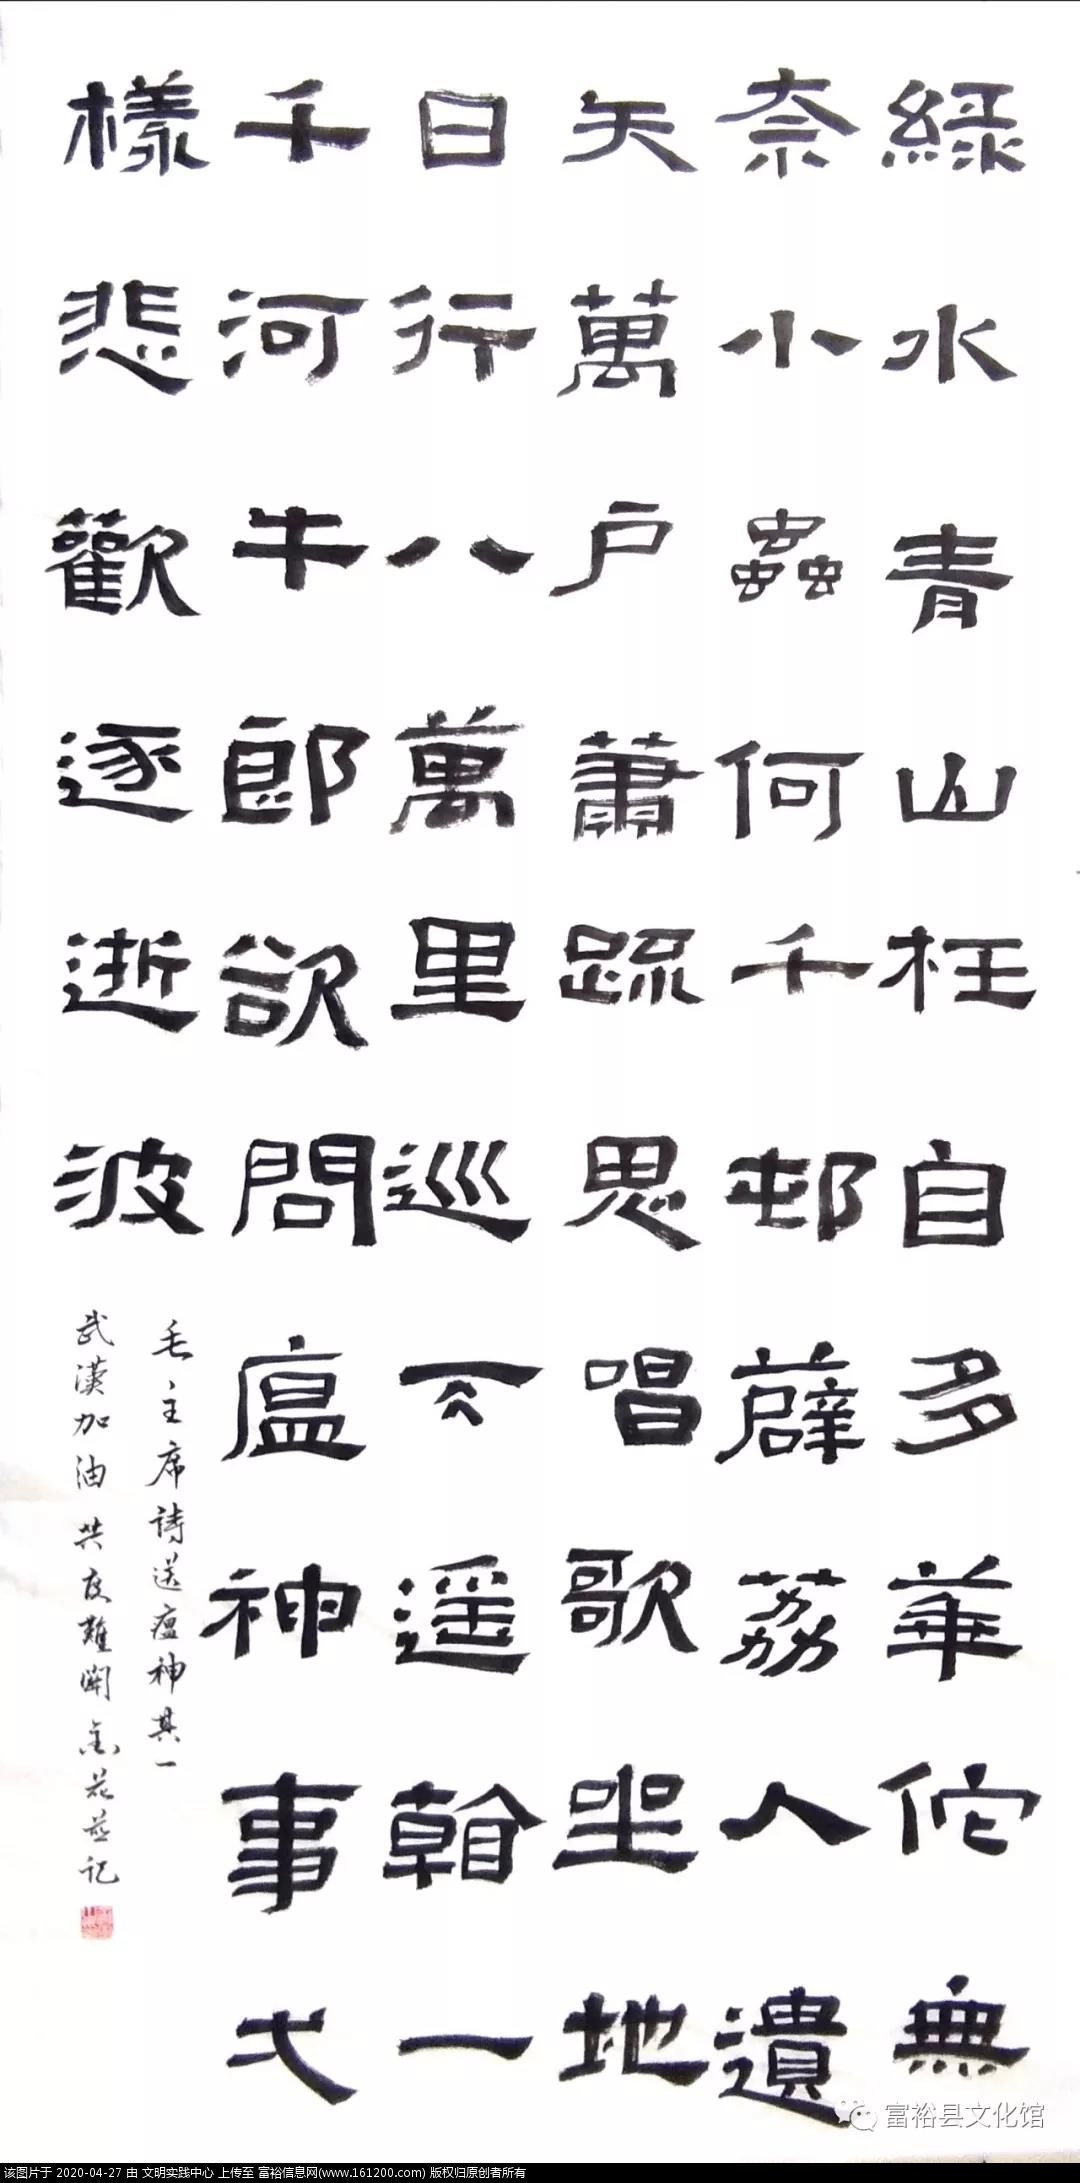 綠水青山枉自多華佗無
奈小蟲何千邨薜荔人遺
矢萬戶蕭疏鬼唱歌坐地
日行八萬里巡天遙看一
千河牛郎欲問瘟神事弋
樣悲歡逐逝波
毛主席詩送瘟神其一
武漢加油 共度難關 花并记
富裕县文化馆
该图片于 2020-04-27 由 文明实践中心 上传至 富裕信息网(www.161200.com) 版权归原创者所有